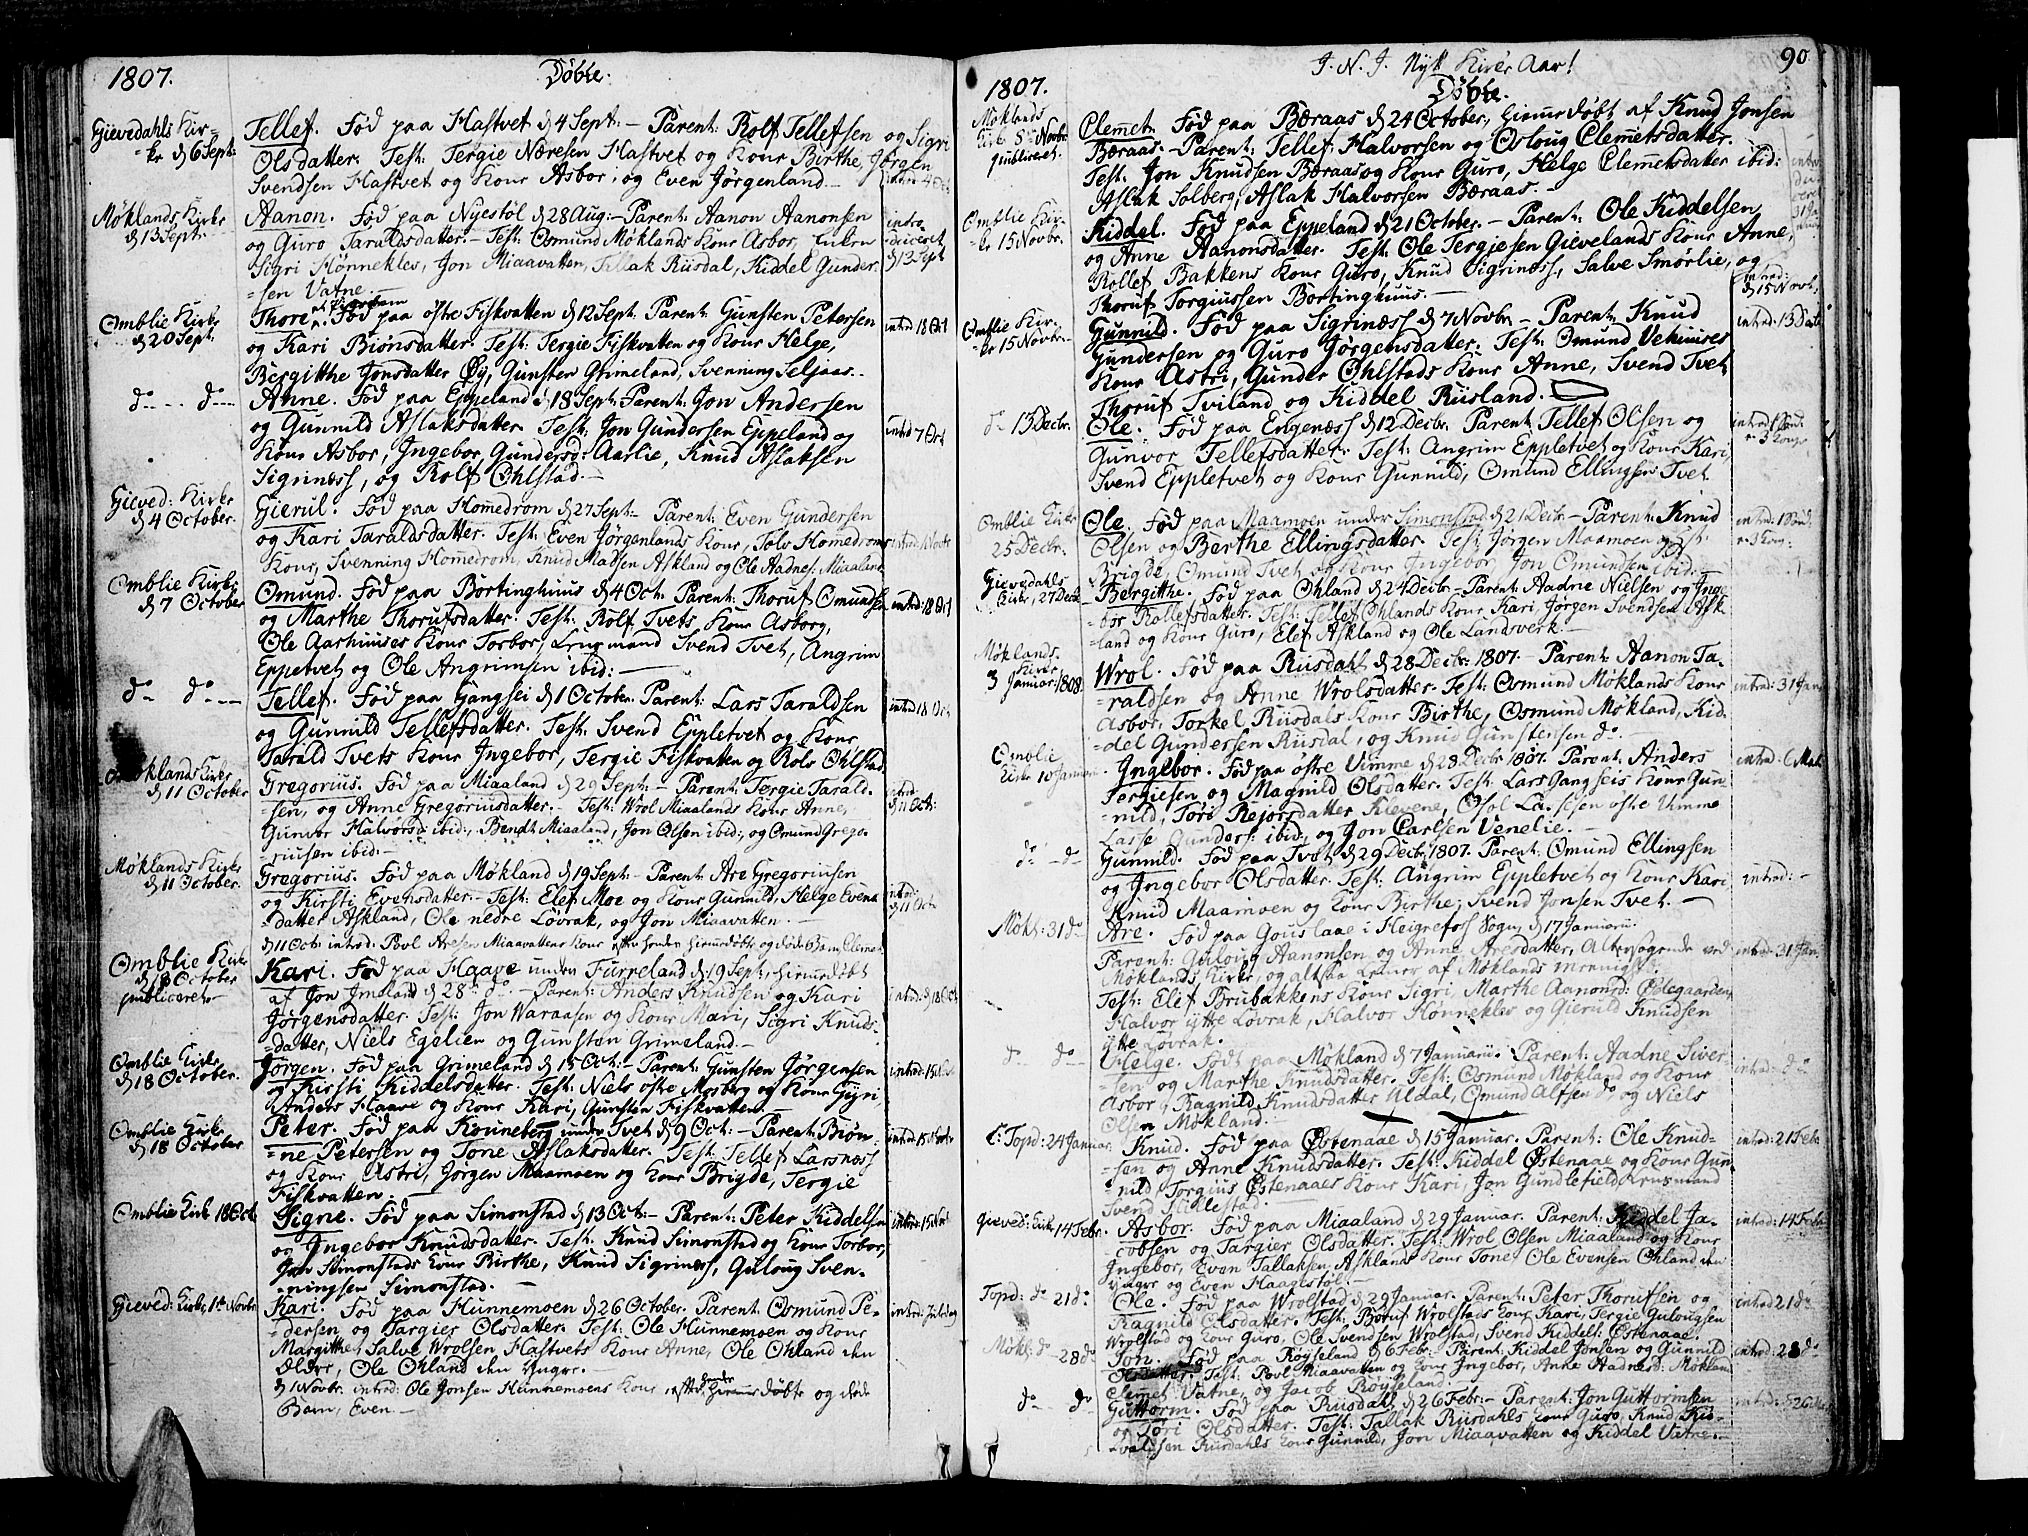 1807.
Døbte.
Gievedahls Kir-
-ke d 6 Sept:
Tellef. Fød paa Hastvet d 4 Sept: - Parent: Rolf Tellefsen og Sigri
Olsdatter. Test: Tergie Næresen Hastvet og Kone Birthe, Jørgen
Svendsen Hastvet og Kone Asbor, og Even Jørgenland. -
Møklands Kirke
d 13 Sept: -
Aanon. Fød paa Nyestøl d 28 Aug: - Parent: Aanon Aanonsen
og Guro Taraldsdatter. - Test: Osmund Møklands Kone Asbor,
Sigri Hønnekles, Jon Miaavatten, Tallak Riisdal, Kiddel Gunder-
-sen Vatne. -
intro-
-duceret
d 13 Sept
Omblie Kirke
d 20 Sept:
Thore. Fød paa østre Fiskvatten d 12 Sept: Parent: Gunsten Petersen
og Kari Biønsdatter. Test: Tergie Fiskvatten og Kone Helge,
Bergitthe Jonsdatter Øy, Gunsten Grimeland, Svenning Seljaas. -
intrd 18 Oct
do - - do -
Anne. Fød paa Eppeland d 18 Sept: Parent: Jon Andersen
og Gunnild Aslaksdatter. Test: Jon Gundersen Eppeland og
Kone Asbor, Ingebor Gundersd: Aarlie, Knud Aslaksen
Sigrinæss, og Rolf Ohlstad. -
intrd 7 Oct
Gieved: Kirke
d 4 October.
Gierul. Fød paa Homedrom d 27 Sept: - Parent: Even Gundersen
og Kari Taraldsdatter. Test: Even Jørgenlands Kone, Tolv Homedroms
Kone, Svenning Homedrom, Knud Madsen Askland og Ole Aadnes: Miaaland
Omblie Kirke
d 7 October
Omund. Fød paa Bortinghuus d 4 Oct: Parent: Thoruf Omundsen
og Marthe Thorufsdatter. Test: Rolf Tvets Kone Asborg,
Ole Aashuuses Kone Torbor, Svend Tvet, Angrim
Eppetvet og Ole Angrimsen ibid: -
intrd: 18 Oct
do do -
Tellef. Fød paa Gangsei d 1 October. Parent: Lars Taraldsen
og Gunnild Tellefsdatter. Test: Svend Eppletvet og Kone
Tarald Tvets Kone Ingebor, Tergie Fiskvatten og Rolv Ohlstad.
intrd 18 Oct
Møklands Kirke
d 11 October
Gregorius. Fød paa Miaaland d 29 Sept: - Parent: Tergie Tarald-
-sen, og Anne Gregoriusdatter. - Test: Wrol Miaalands Kone Anne,
Gunvor Halvorsd: ibid:, Bendt Miaaland, Jon Olsen ibid:, og Omund Grego-
-riusen ibid: -
d 11 Oct:
Møklands Kirke
d 11 October.
Gregorius. Fød paa Møkland d 19 Sept: - Parent: Are Gregoriusen
og Kirsti Evensdatter. - Test: Elef Moe og Kone Gunnild, Helge Evens-
-datter Askland, Ole nedre Løvrak, og Jon Miaavatten. -
intrd:
d 11 Oct:
d 11 Oct: introd: Povl Aresen Miaavattens Kone efter hendes hiemmedøbte og døde Barn, Clemet
Omblie Kirke
d 18 October
publiceret. -
Kari. Fød paa Haave under Furreland d 19 Sept:, hiemedøbt
af Jon Imeland d 28de do. - Parent: Anders Knudsen og Kari
Jørgensdatter. Test: Jon Waraasen og Kone Mari, Sigri Knuds-
-datter, Niels Egelien og Gunsten Grimeland. -
intrd: d 18 Oct
Omblie Kirke
d 18 October.
Jørgen. Fød paa Grimeland d 15 Oct: - Parent: Gunsten Jørgensen
og Kirsti Kiddelsdatter. Test: Niels østre Mosberg og Kone Gyri,
Anders Haave og Kone Kari, Gunsten Fiskvatten. -
Omblie Kirke
d 18 October
Peter. Fød paa Kouneberg under Tvet d 9 Oct: - Parent: Biøn-
-ne Petersen og Tone Aslaksdatter. Test: Tellef Larsnæss
og Kone Astri, Jørgen Maamoen og Kone Brigde, Tergie
Fiskvatten. -
Omblie Kirke 18 Oct:
Signe. Fød paa Simonstad d 13 Oct: - Parent: Peter Kiddelsen
og Ingebor Knudsdatter. Test: Knud Simonstad og Kone Torbor,
Jon Simonstads Kone Birthe, Knud Sigrinæss, Guloug Sven-
-ningsen Simonstad. -
Gieved: Kirke 1te Novbr
Kari. Fød paa Hunnemoen d 26 October. Parent: Osmund Pe-
-dersen og Targier Olsdatter. Test: Ole Hunnemoen og Kone
Margitthe, Salve Wrolsen, Hastvets Kone Anne, Ole Ohland den
Ældre, Ole Ohland den Yngre. -
d 1 Novbr. introd: Ole Jonsen Hunnemoens Kone efter hendes hiemmedøbte og døde
Barn, Even. -

J. N. J. Nytt Kirke Aar!
90
1807.
Døbte.
Møklands
Kirke 8de Novbr
publiceret.
Clemet. Fød paa Beraas d 24 October, hiemmedøbt af Knud Jonsen
Beraas. - Parent: Tellef Halvorsen og Osloug Clemetsdatter.
Test: Jon Knudsen Beraas og Kone Guro, Helge Clemetsdatter ibid:
Aslak Solberg, Aslak Halvorsen Beraas. -
Omblie Kir-
-ke 15 Novbr.
Kiddel. Fød paa Eppeland d 21 October. - Parent: Ole Kiddelsen
og Anne Aanonsdatter. Test: Ole Tergiesen Gievelands Kone Anne,
Rollef Bakkens Kone Guro, Knud Sigrinæss, Salve Smørlie, og
Thoruf Torgiussen Bortinghuus. -
introd:
d 15 Novb:
Omblie Kir-
-ke 15 Novbr. -
Gunnild. Fød paa Sigrinæss d 7 Novbr. - Parent: Knud
Gundersen og Guro Jørgensdatter. Test: Omund Vehuuses
Kone Astri, Gunder Ohlstads Kone Anne, Svend Tvet
Thoruf Tviland og Kiddel Riisland.
do 13 Decbr.
Ole. Fød paa Engenæss d 12 Decbr. Parent: Tellef Olsen og
Gunvor Tellefsdatter. Test: Angrim Eppletvet og Kone Kari,
Svend Eppletvet og Kone Gunnild, Omund Ellingsen Tvet.
Omblie Kirke
25 Decbr.
Ole. Fød paa Maamoen under Simonstad d 21 Decbr - Parent: Knud
Olsen og Berthe Ellingsdatter. Test: Jørgen Maamoen og
Brigde, Omund Tvet og Kone Ingebor, Jon Omundsen ibid: -
Gievedahls
Kirke, 27 Decbr
Bergitthe. Fød paa Ohland d 24 Decbr - Parent: Aadne Nielsen og Inge-
-bor Rollefsdatter. Test: Tellef Ohlands Kone Kari, Jørgen Svendsen Ask-
-land og Kone Guro, Elef Askland og Ole Landsverk. -
Møklands
Kirke
3 Januar: 1808.
Wrol. Fød paa Riisdahl d 28 Decbr. 1807. - Parent: Aanon Ta-
-raldsen og Anne Wrolsdatter. Test: Osmund Møklands Kone
Asbor, Torkel Riisdals Kone Birthe, Osmund Møkland, Kid-
-del Gundersen Riisdal, og Knud Gunstensen do. -
intrd: 31 Jan:
Omblie
Kirke 10 Januar.
Ingebor. Fød paa østre Vimme d 28 Decbr 1807. Parent: Anders
Tergiesen og Magnild Olsdatter. Test: Lars Gangseis Kone Gun-
-nild, Tøri Rejorsdatter Klevene, Osol Lassesen østre Vimme
Lasse Gunders: ibid:, og Jon Carlsen Venelie. -
do - do -
Gunnild. Fød paa Tvet d 29 Decbr 1807. Parent: Omund Ellingsen
og Ingebor Olsdatter. Test: Angrim Eppletvet og Kone Kari
Knud Maamoen og Kone Birthe, Svend Jonsen Tvet. -
intrd: -
Møkl: 31 do
Are. Fød paa Gouslaae i Heigrefos Sogn, d 17 Januarii.
Parent: Guloug Aanonsen og Anne Aresdatter, Altersøgende ved
Møklands Kirke, og altsaa Lemer af Møklands Menighed.
Test: Elef Brubakkens Kone Sigri, Marthe Aanonsd: Ødegaarden,
Halvor ytre Løvrak, Halvor Hønnekles og Gieruld Knudsen
ytre Løvrak.
intrd: 31 Jan:
do do -
Helge. Født paa Møkland d 7 Januarii. Parent: Aadne Siver-
-sen og Marthe Knudsdatter. Test: Osmund Møkland og Kone
Asbor, Ragnild Knudsdatter Uldal, Omund Alfsen do og Niels
Olsen Møkland.
intrd: do
C: Topd: 24 Januar.
Knud. Fød paa Østenaae d 15 Januar. Parent: Ole Knud-
-sen og Anne Knudsdatter. Test: Kiddel Østenaae og Kone Gun-
-nild, Torgius Østenaaes Kone Kari, Jon Gundlefield
Svend Hillestad.
intrd: 21 Feb:
Gieved: Kirke 14 Febr.
Asbor. Fød paa Miaaland d 29 Januar. Parent: Kiddel Ja-
-cobsen og Targier Olsdatter. Test: Wrol Olsen Miaaland og Kone
Ingebor, Even Tallaksen, Asklands Kone Tone, Ole Evensen Ohland den
Yngre og Even Haagestøl. -
intrd: 14 Febr
Topd: do 21 do
Ole. Fød paa Wrolstad d 29 Januar. Parent: Peter Thorufsen og
Ragnild Olsdatter. Test: Boruf Wrolstads Kone Kari, Tergie Gulougsen
Wrolstad og Kone Guro, Ole Svendsen Wrolstad, Svend Kiddels: Østenaae.
intrd 21 do
Møkl: do 28 do
Jon. Fød paa Røyseland d 6 Febr. Parent: Kiddel Jonsen og Gunnild
Olsdatter. Test: Povl Miaavatten og Kone Ingebor, Anne Aadnesd: Møkland
Clemet Vatne, og Jacob Røyseland.
intrd: 28 do
do do
Guttorm. Fød paa Riisdahl d 26 Febr. - Parent: Jon Guttormsen
og Tøri Olsdatter. Test: Tallak Riisdahls Kone Guro, Knud Kid-
-valdsen Riisdahls Kone Gunnild, Jon Miaavatten og Kiddel Vatne. -